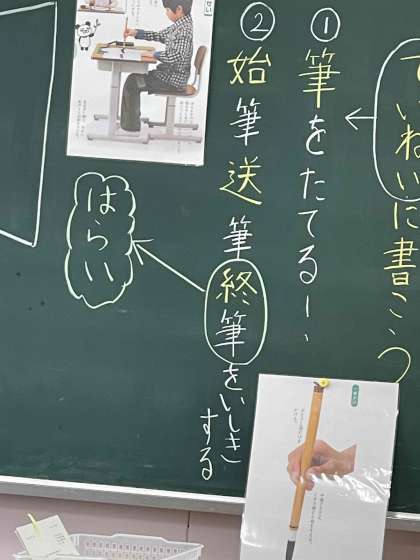 ていねいに書こう
①筆をたてるー、
②始筆送筆終筆をいしき
する
はらい